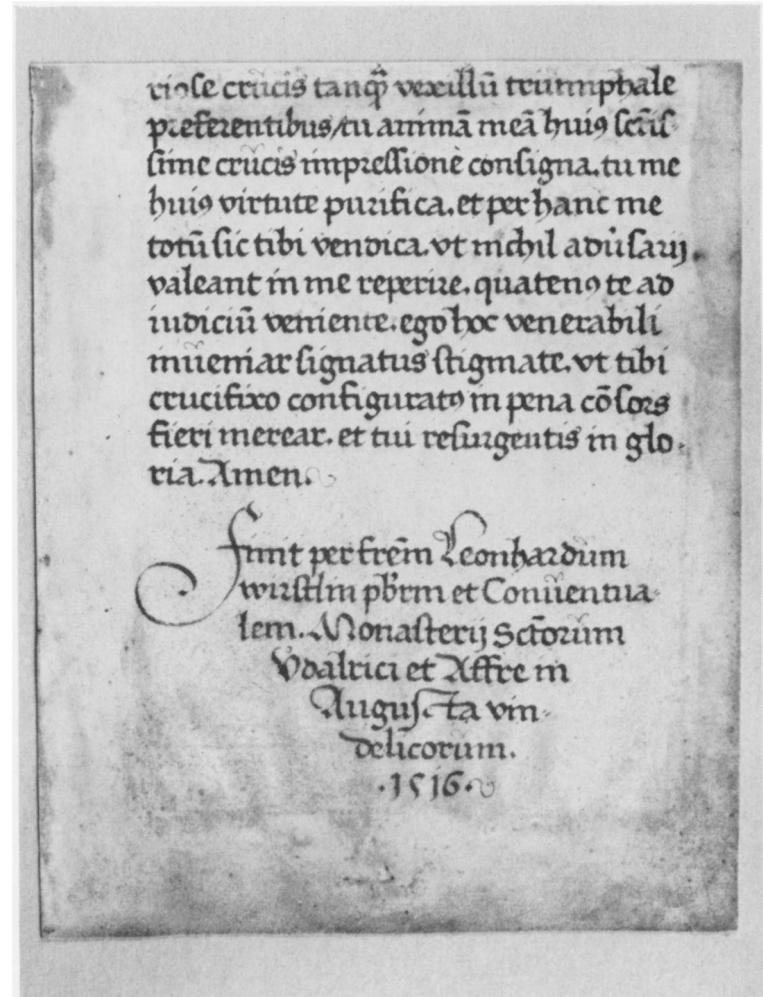 riose crucis tanq̃ vexillũ triumphale
preferentibus/tu animã meã huiꝰ sct̃is-
sime crucis impressionẽ consigna. tu me
huiꝰ virtute purifica. et per hanc me
totũ sic tibi vendica. vt nichil adũsarij
valeant in me reperire. quatenꝰ te ad
iudiciũ veniente. ego hoc venerabili
inueniar signatus stigmate. vt tibi
crucifixo configuratꝰ in pena cõsors
fieri merear. et tui resurgentis in glo-
ria. Amen.
Finit per frẽm Leonhardum
wirstlin pb̃rm et Conuentua-
lem. Monasterij Sct̃orum
Vdalrici et Affre in
Augusta vin-
delicorum.
.1516.